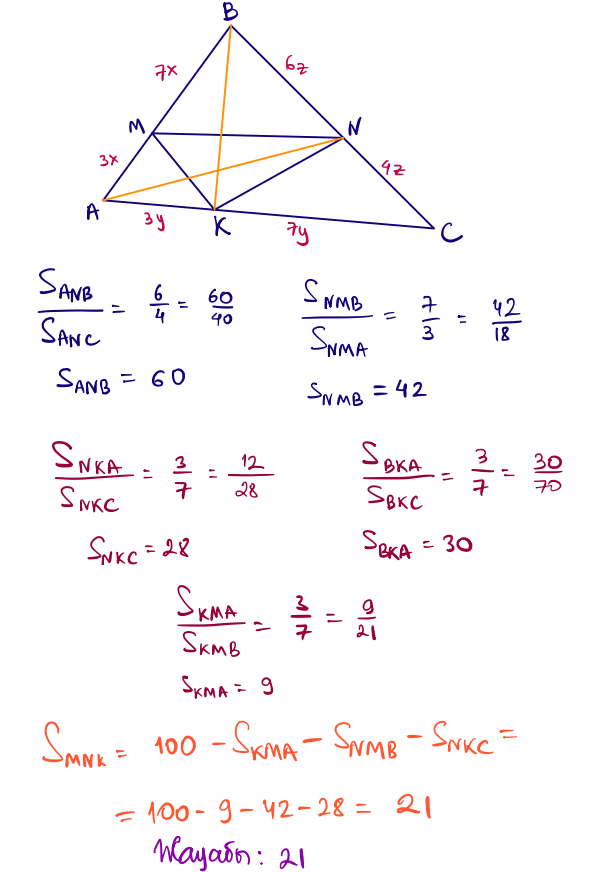 B
7x
6z
M
N
3x
4z
A
3y
K
7y
C
S_ANB / S_ANC = 6/4 = 60/40
S_NMB / S_NMA = 7/3 = 42/18
S_ANB = 60
S_NMB = 42
S_NKA / S_NKC = 3/7 = 12/28
S_BKA / S_BKC = 3/7 = 30/70
S_NKC = 28
S_BKA = 30
S_KMA / S_KMB = 3/7 = 9/21
S_KMA = 9
S_MNK = 100 - S_KMA - S_NMB - S_NKC =
= 100 - 9 - 42 - 28 = 21
Жауабы: 21